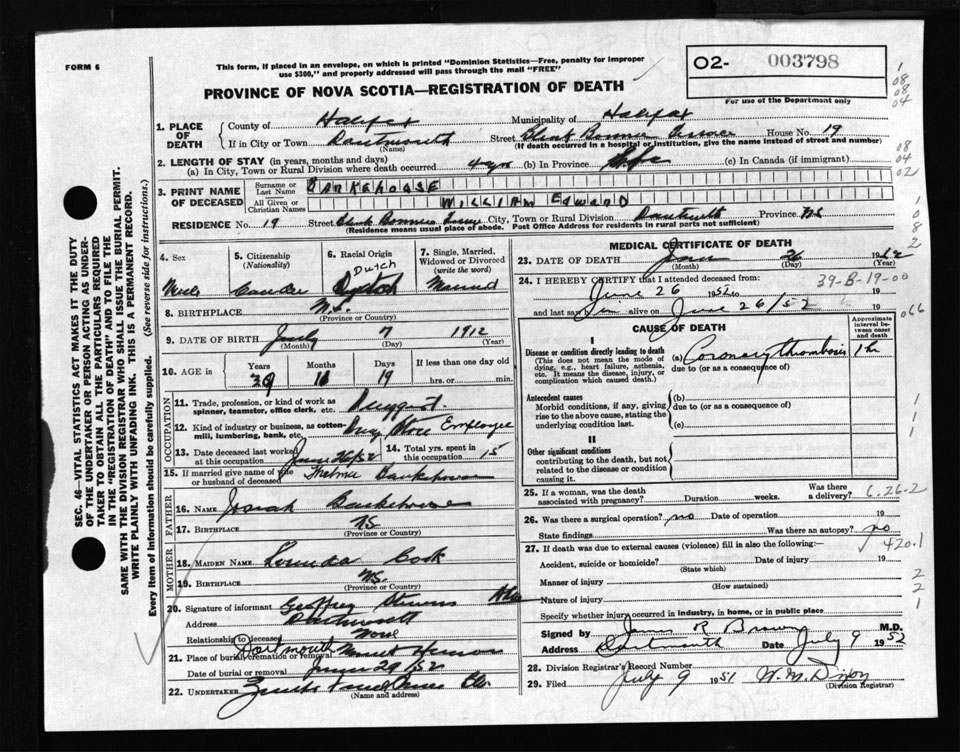 FORM 6
This form, if placed in an envelope, on which is printed "Dominion Statistics—Free, penalty for improper
use $300," and properly addressed will pass through the mail "FREE"
O2- 003798
For use of the Department only
PROVINCE OF NOVA SCOTIA—REGISTRATION OF DEATH
1. PLACE OF DEATH
County of Halifax Municipality of Halifax
If in City or Town Dartmouth Street House No. 19
(Name) (If death occurred in a hospital or institution, give the name instead of street and number)
2. LENGTH OF STAY (in years, months and days)
(a) In City, Town or Rural Division where death occurred 4 yrs (b) In Province Life (c) In Canada (if immigrant)
3. PRINT NAME OF DECEASED
Surname or Last Name BARKEHOUSE
All Given or Christian Names WILLIAM EDWARD
RESIDENCE No. 19 Street City, Town or Rural Division Dartmouth Province NS
(Residence means usual place of abode. Post Office Address for residents in rural parts not sufficient)
4. Sex Male
5. Citizenship (Nationality)
6. Racial Origin Dutch
7. Single, Married, Widowed or Divorced (write the word) Married
8. BIRTHPLACE N.S.
(Province or Country)
9. DATE OF BIRTH July 7 1912
(Month) (Day) (Year)
10. AGE in Years Months Days If less than one day old
39 11 19 hrs. or min.
OCCUPATION
11. Trade, profession or kind of work as spinner, teamster, office clerk, etc. Druggist
12. Kind of industry or business, as cotton-mill, lumbering, bank, etc. Drug Store Employee
13. Date deceased last worked at this occupation
14. Total yrs. spent in this occupation 15
15. If married give name of wife or husband of deceased Thelma Barkehouse
FATHER
16. NAME Josiah Barkehouse
17. BIRTHPLACE NS
(Province or Country)
MOTHER
18. MAIDEN NAME Cook
19. BIRTHPLACE NS.
(Province or Country)
20. Signature of informant Geoffrey Stevens
Address Dartmouth
Relationship to deceased None
21. Place of burial, cremation or removal Dartmouth Mount Hermon
Date of burial or removal June 29/52
22. UNDERTAKER
(Name and address)
MEDICAL CERTIFICATE OF DEATH
23. DATE OF DEATH June 26 1952
(Month) (Day) (Year)
24. I HEREBY CERTIFY that I attended deceased from:
39-B-19-00
June 26 1952 to 19
and last saw him alive on June 26/52 19
066
CAUSE OF DEATH
Approximate interval between onset and death
I
Disease or condition directly leading to death (a) Coronary thrombosis 1 hr
(This does not mean the mode of dying, e.g., heart failure, asthenia, etc. It means the disease, injury, or complication which caused death.)
due to (or as a consequence of)
Antecedent causes (b)
Morbid conditions, if any, giving rise to the above cause, stating the underlying condition last.
due to (or as a consequence of)
(c)
II
Other significant conditions
contributing to the death, but not related to the disease or condition causing it.
25. If a woman, was the death associated with pregnancy? Duration weeks. Was there a delivery? 6.26.2
26. Was there a surgical operation? no Date of operation 19
State findings Was there an autopsy? no
27. If death was due to external causes (violence) fill in also the following:— 420.1
Accident, suicide or homicide? Date of injury 19
(State which)
Manner of injury
(How sustained)
Nature of injury
Specify whether injury occurred in industry, in home, or in public place
Signed by James R Brown M.D.
Address Dartmouth Date July 9 1952
28. Division Registrar's Record Number
29. Filed July 9 1951
(Division Registrar)
SEC. 46—VITAL STATISTICS ACT MAKES IT THE DUTY
OF THE UNDERTAKER OR PERSON ACTING AS UNDER-
TAKER TO OBTAIN ALL THE PARTICULARS REQUIRED
IN THE "REGISTRATION OF DEATH" AND TO FILE THE
SAME WITH THE DIVISION REGISTRAR WHO SHALL ISSUE THE BURIAL PERMIT.
WRITE PLAINLY WITH UNFADING INK. THIS IS A PERMANENT RECORD.
Every item of information should be carefully supplied. (See reverse side for instructions.)
1
08
08
04
08
04
02
1
0
8
2
1
1
1
2
2
1